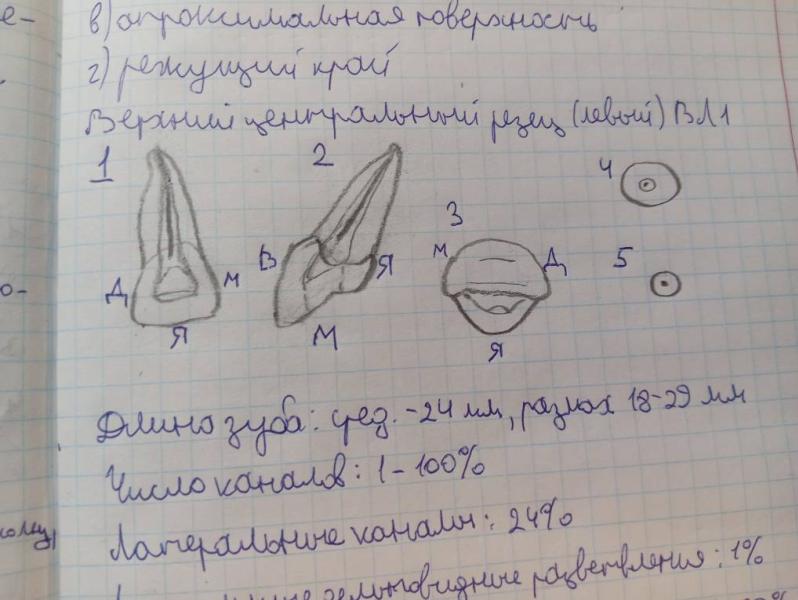 е-
в) апроксимальная поверхность
г) режущий край
Верхний центральный резец (левый) ВЛ1
1 2 4
3
Д М В Я М Д 5
о-
Я М Я
Длина зуба: сред. -24 мм, размах 18-29 мм
Число каналов: 1 - 100%
Латеральные каналы: 24%
разветвления: 1%